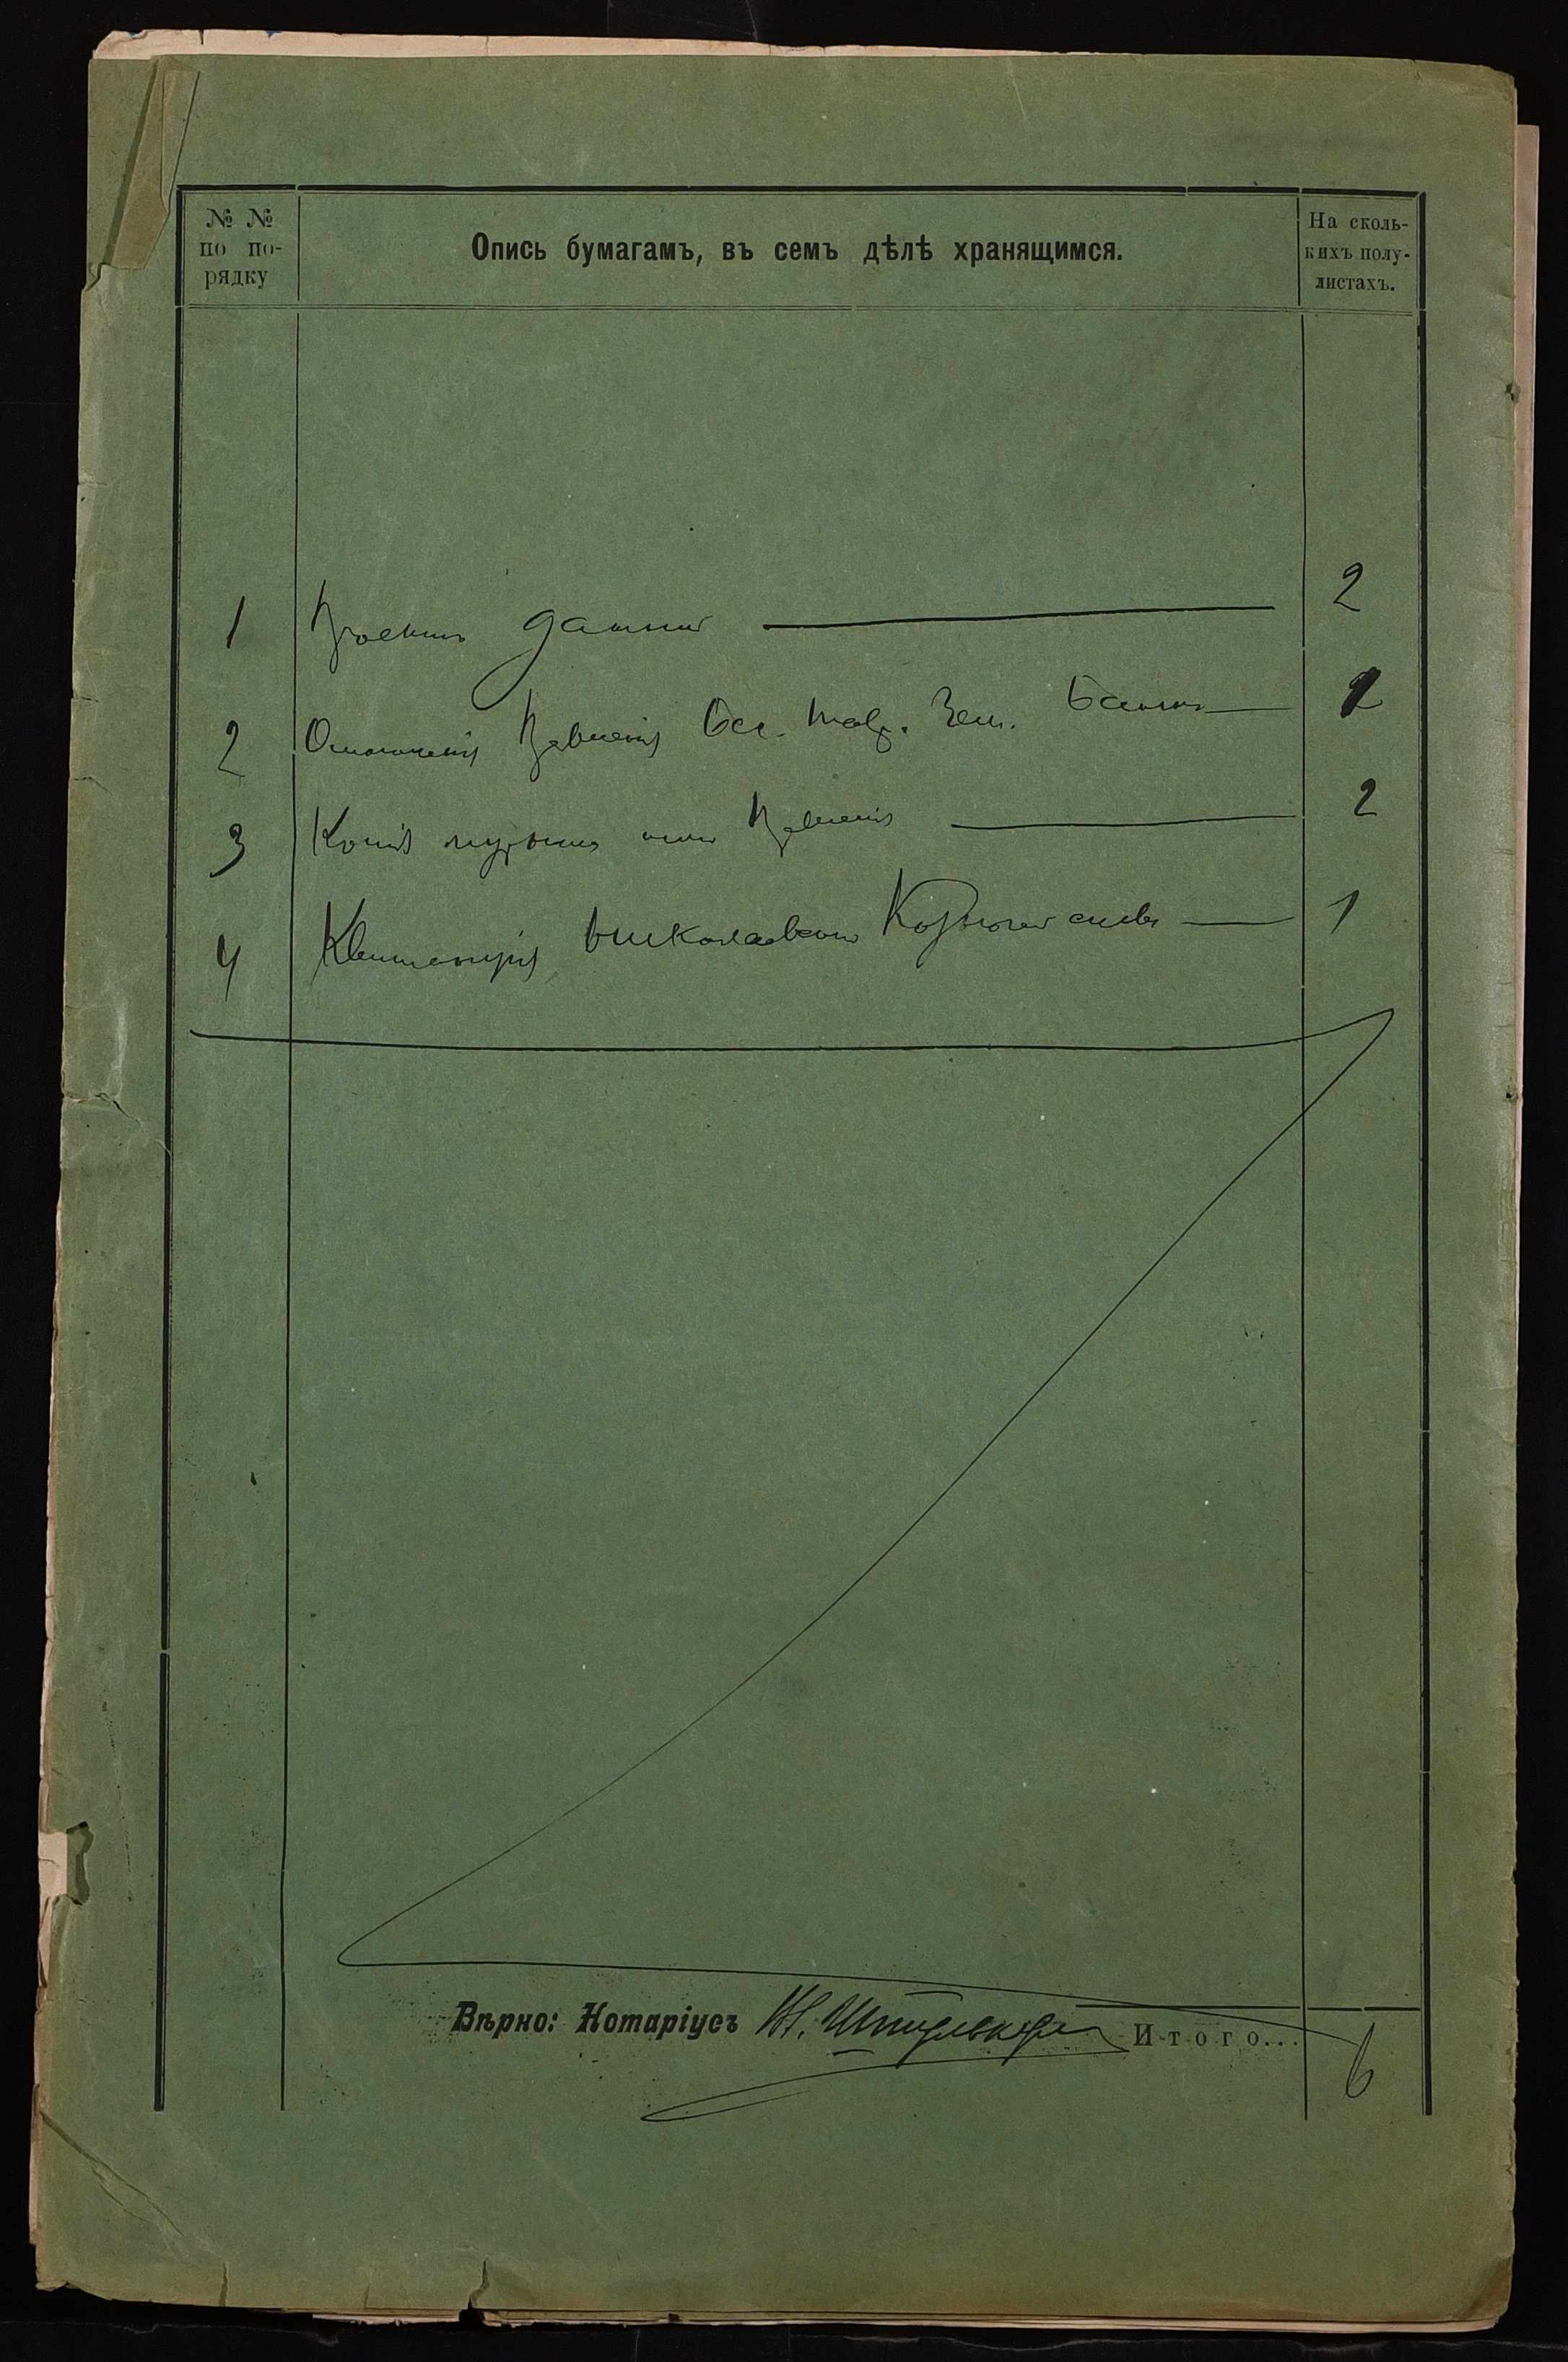 № №
по по-
рядку
Опись бумагамъ, въ семъ дѣлѣ хранящимся.
На сколь-
кихъ полу-
листахъ.
1 Проектъ данной 2
2 Отношенія Правленія Бес. Тавр. Зем. Банка
3 Копія журнала Правленія 2
4 Квитанція Николаевскаго Казначейства 1
Вѣрно: Нотаріусъ Итого... 6